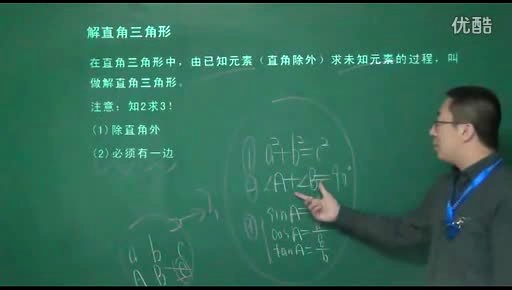 优酷
解直角三角形
在直角三角形中，由已知元素（直角除外）求未知元素的过程，叫
做解直角三角形。
注意：知2求3！
(1)除直角外
(2)必须有一边
① a²+b²=c²
② ∠A+∠B=90°
③ sinA=
cosA=b/c
tanA=a/b
a b c
A B